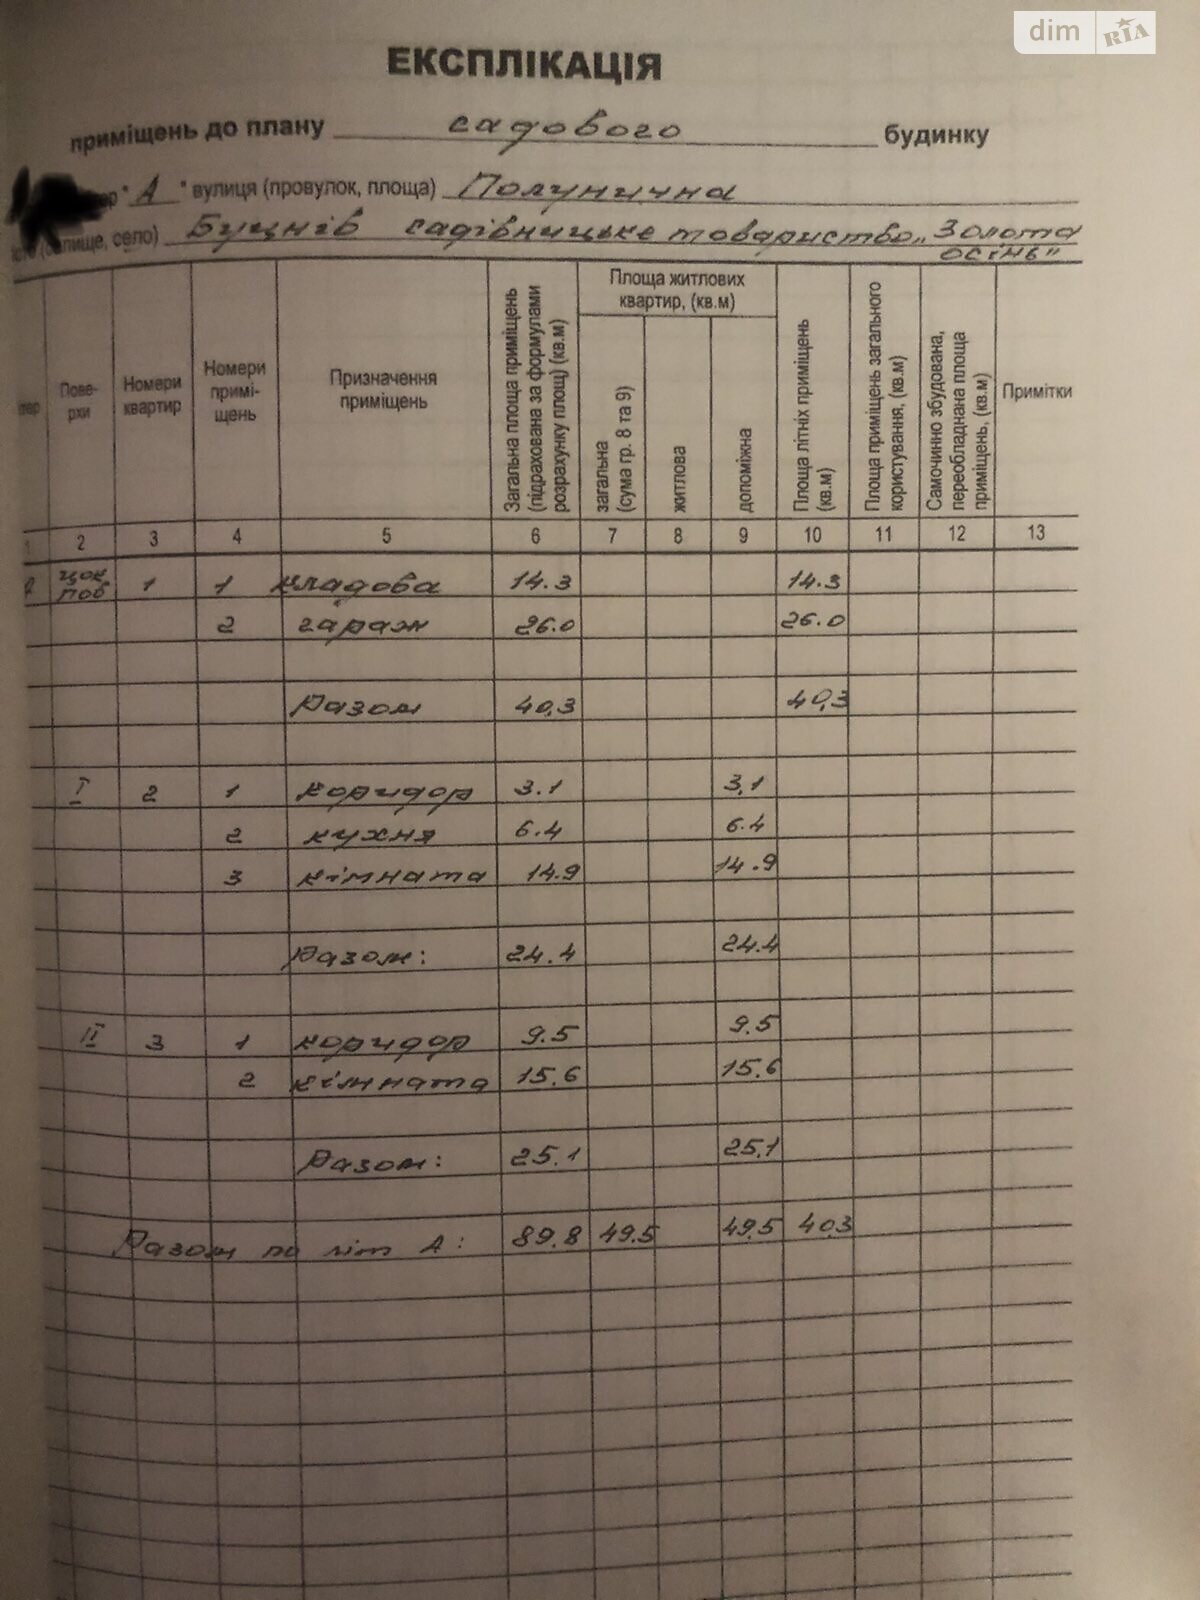 dim RIA
ЕКСПЛІКАЦІЯ
приміщень до плану садового будинку
"А" вулиця (провулок, площа) Полунична
(селище, село) Буцнів садівницьке товариство „Золота
осінь"
Пове-
рхи
Номери
квартир
Номери
примі-
щень
Призначення
приміщень
Загальна площа приміщень
(підрахована за формулами
розрахунку площ) (кв.м)
Площа житлових
квартир, (кв.м)
загальна
(сума гр. 8 та 9)
житлова
допоміжна
Площа літніх приміщень
(кв.м)
Площа приміщень загального
користування, (кв.м)
Самочинно збудована,
переобладнана площа
приміщень, (кв.м)
Примітки
1 2 3 4 5 6 7 8 9 10 11 12 13
цок. пов 1 1 кладова 14.3 14.3
2 гараж 26.0 26.0
Разом 40,3 40,3
I 2 1 коридор 3.1 3,1
2 кухня 6.4 6.4
3 кімната 14.9 14.9
Разом: 24.4 24.4
II 3 1 коридор 9.5 9.5
2 кімната 15.6 15.6
Разом: 25.1 25.1
Разом по літ А: 89.8 49.5 49.5 40.3